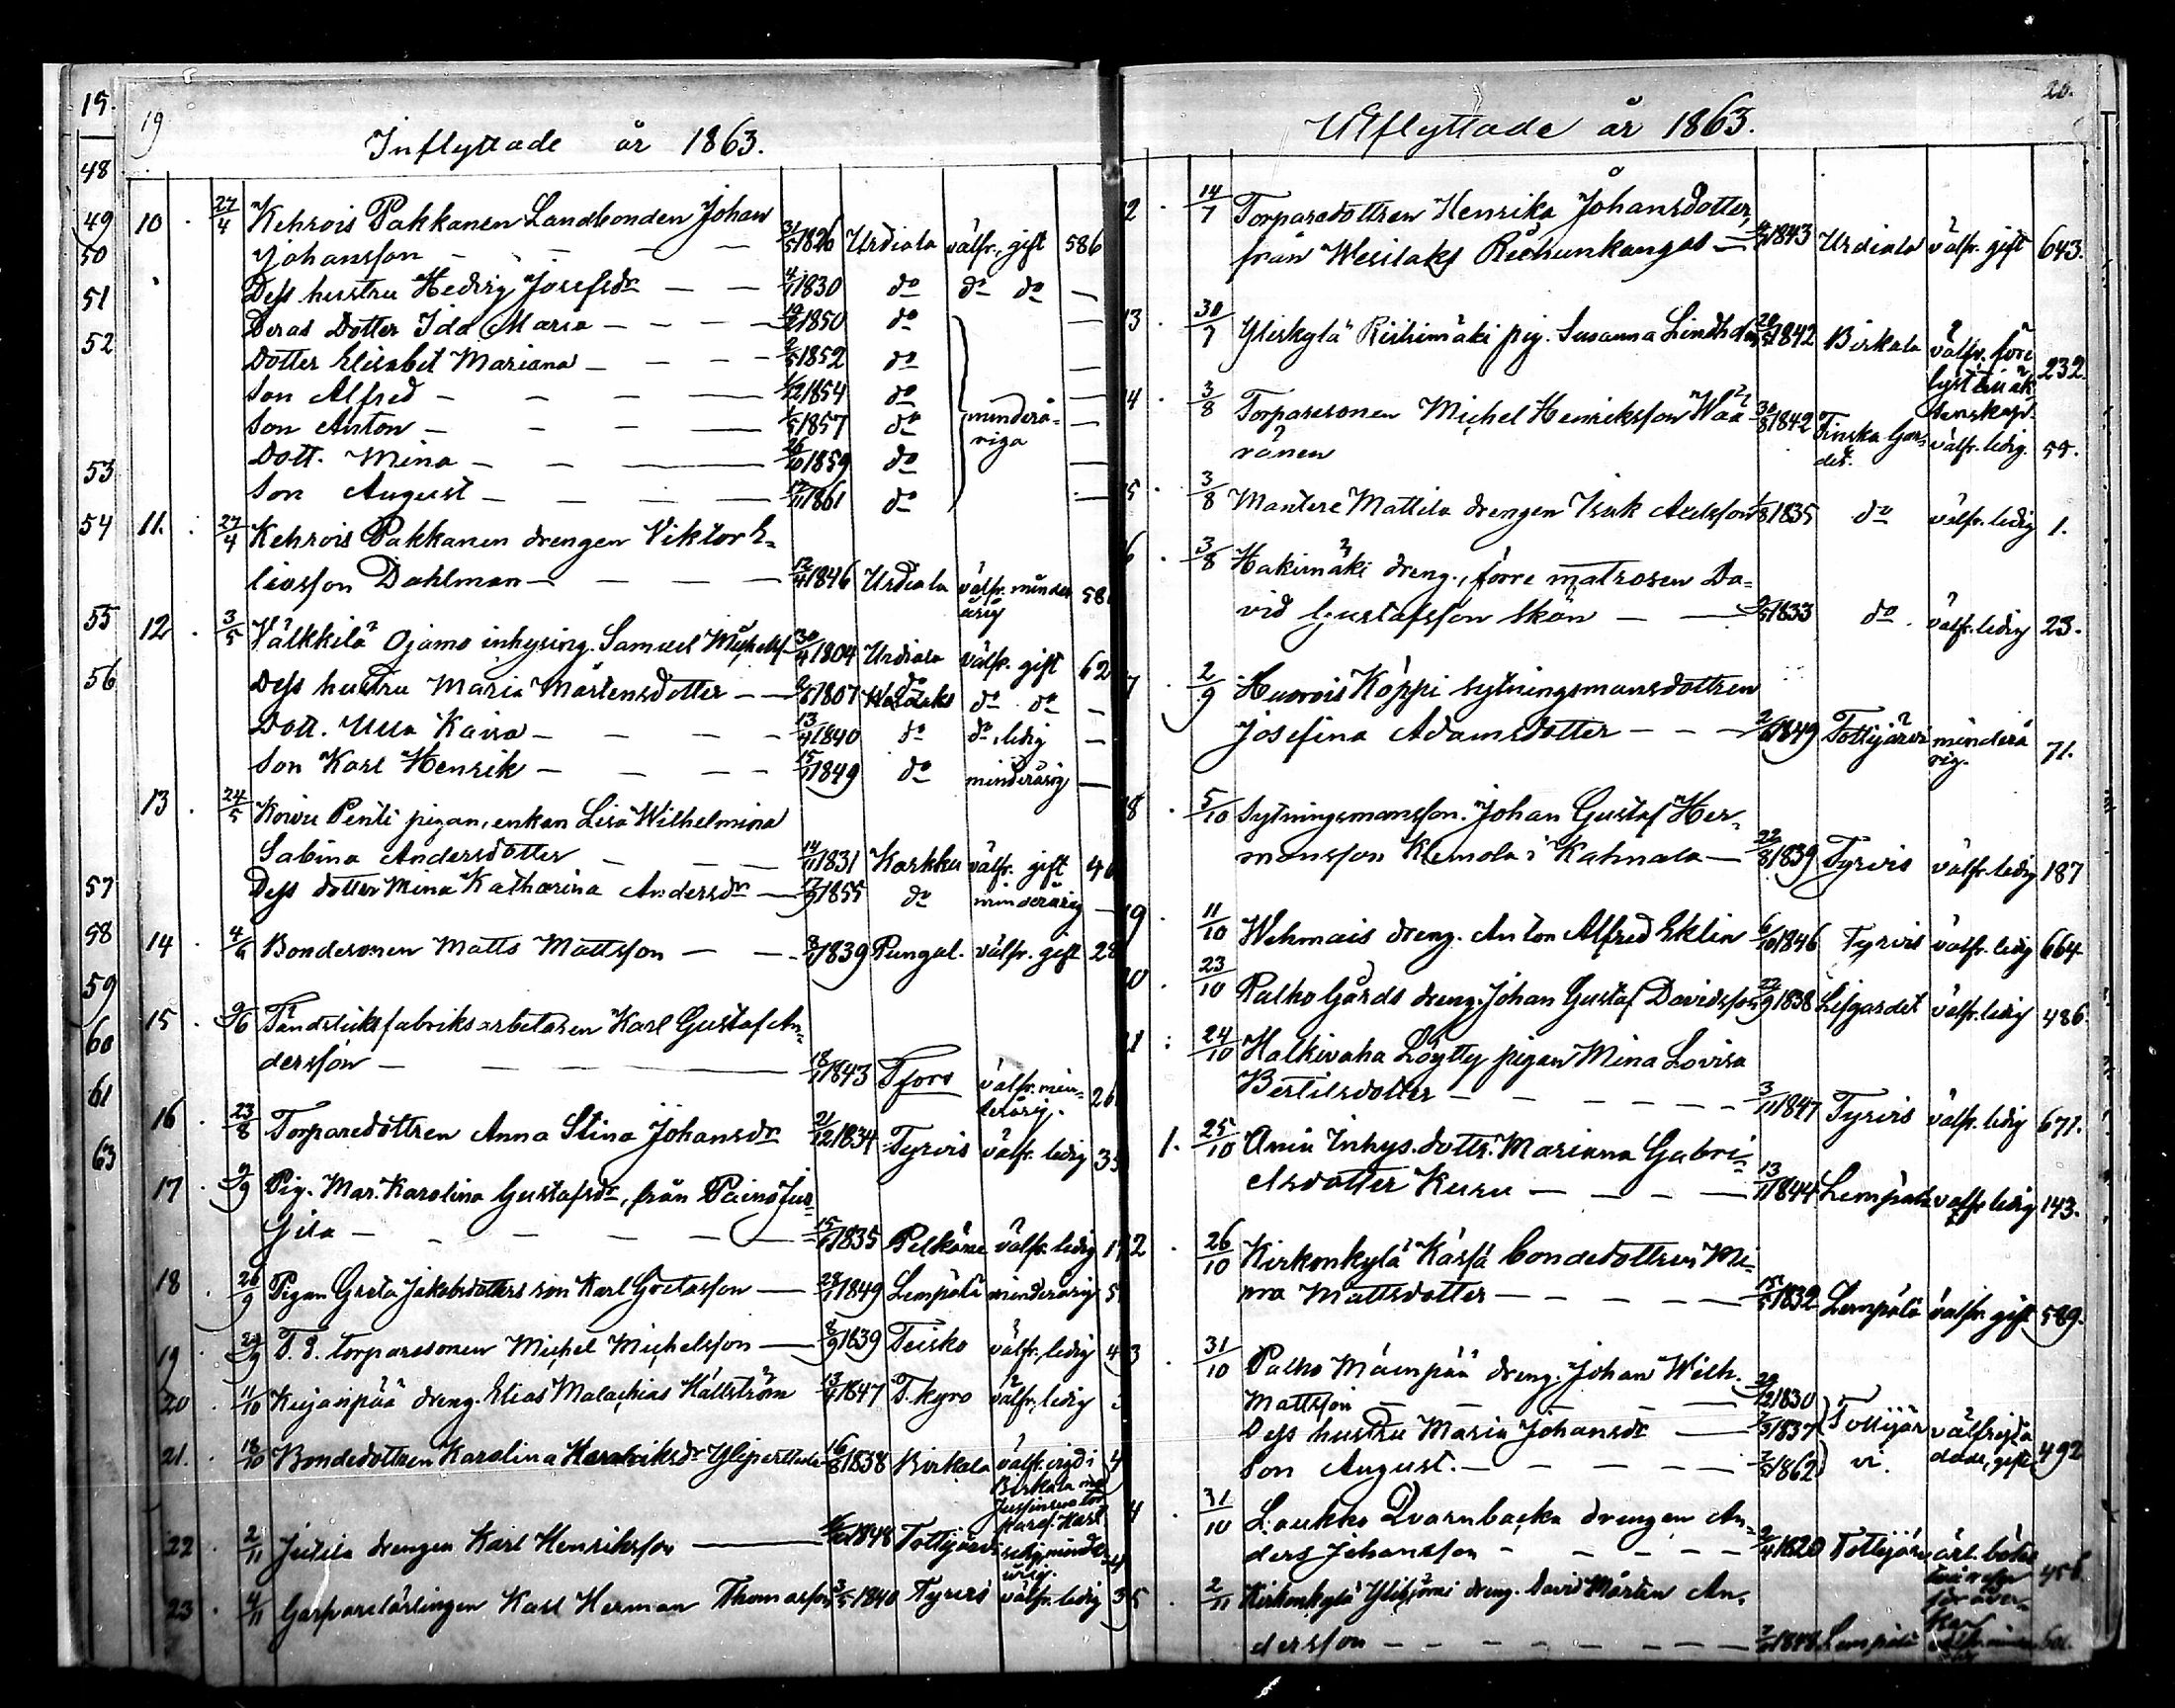 19
Inflyttade år 1863.
10 . 27/4 Kehrois Pakkanen Landbonden Johan
Johansson — 31/5 1826 Urdiala välfr. gift 586
Dess hustru Hedvig Josefsdr — 4/1 1830 do do do —
Deras dotter Ida Maria — 1850 do
Dotter Elisabet Mariana — 2/5 1852 do —
Son Alfred — 1/12 1854 do —
Son Anton — 1/5 1857 do minderå- —
Dott. Mina — 26/10 1859 do riga —
Son August — 17/11 1861 do —
11. 27/4 Kehrois Pakkanen drengen Viktor E-
liasson Dahlman — 12/4 1846 Urdiala välfr. minder
årig 58
12 . 3/5 Välkkilä Ojamo inhysing. Samuel Michelsf. 30/4 1804 Urdiala välfr. gift 62
Dess hustru Maria Mårtensdotter — 1807 do do —
Dott. Ulla Kaisa — 13/4 1840 do do, ledig —
Son Karl Henrik — 15/11 1849 do minderårig —
13 . 24/5 Koivu Penti pigan, enkan Lisa Wilhelmina
Sabina Andersdotter — 14/11 1831 Karkku välfr. gift 40
Dess dotter Mina Katharina Andersdr — 17/9 1855 do minderårig —
14 . 4/6 Bondesonen Matts Mattsson — 1839 Pungal. välfr. gift 28
15 . 9/6 Tändsticksfabriksarbetaren Karl Gustaf An-
dersson — 18/11 1843 Tfors välfr. min-
derårig. 26
16 . 23/8 Torparedottren Anna Stina Johansdr 21/12 1834 Tyrvis välfr. ledig 35
17 . 9/9 Pig. Mar. Karolina Gustafsdr, från Paino Jus-
sila — 1835 Pelkäne välfr. ledig
18 . 26/9 Pigan Greta Jakobsdotters son Karl Gustafsson — 1849 Lempälä minderårig 5
19 . 29/9 T. S. torparesonen Michel Michelsson — 8/9 1839 Teisko välfr. ledig 4
20 . 11/10 Kujanpää dreng. Elias Malachias Hällström 13/4 1847 T. kyro välfr. ledig
21. 18/10 Bondedottren Karolina Henriksdr Ylipertula 16/8 1838 Birkala välfr. vigd i 4
Birkala
Karl
22 . 2/11 Jutila drengen Karl Henriksson — 1848 Tottijärvi ledig, minder-
årig. 4
23 . 4/11 Garfvarelärlingen Karl Herman Thomasson 3/5 1840 Tyrvis välfr. ledig 3
15.
48
49
50
51
52
53
54
55
56
57
58
59
60
61
63
20.
Utflyttade år 1863.
2 . 14/7 Torparedottren Henrika Johansdotter,
från Wesilaks Riehunkangas — 1843 Urdiala välfr. gift 643.
3 . 30/7 Yliskylä Riihimäki pig. Susanna Lindholm 1842 Birkala välfr. före
lyst till äk 232.
tenskap.
4 . 3/8 Torparesonen Michel Henriksson Waa- 30/8 1842 Finska Gar- välfr. ledig. 55.
ränen det.
5 . 3/8 Mantere Mattila drengen Isak Axelsson 1/8 1835 do välfr. ledig 1.
6 . 3/8 Hakimäki dreng., förre matrosen Da-
vid Gustafsson Skön — 1833 do. välfr. ledig 23.
7 . 2/9 Huorois Köppi sytningsmansdottren
Josefina Adamsdotter — 1849 Tottijärvi minderå
rig. 71.
8 . 5/10 Sytningsmansson. Johan Gustaf Her-
mansson Klemola i Kahnala — 22/8 1839 Tyrvis välfr. ledig 187
9 . 11/10 Wehmais dreng. Anton Alfred Eklin 6/10 1846 Tyrvis välfr. ledig 664.
0 . 23/10 Palho Gårds dreng. Johan Gustaf Davidsson 22/9 1838 Lifgardet välfr. ledig 486.
1 : 24/10 Halkivaha Löytty pigan Mina Lovisa
Bertilsdotter — 3/11 1847 Tyrvis välfr. ledig 671.
1. 25/10 Ania Inhys. dottr. Mariana Gabri-
elsdotter Kusu — 13/11 1844 Lempälä välfr. ledig 143.
2 . 26/10 Kirkonkylä Kärfä bondedottren Mi-
na Mattsdotter — 15/5 1832 Lempälä välfr. gift 589.
3 . 31/10 Palho Mäenpää dreng. Johan Wilh.
Mattsson — 1830
Dess hustru Maria Johansdr — 1837 Tottijär välfrejda
Son August. — 1862 vi. dade, gifte 492
4 . 31/10 Laukko Qvarnbacka drengen An-
ders Johansson — 1820 Tottijärvi 458
5 . 2/11 Kirkonkylä dreng. David Mårten An-
dersson — 1848 Lempälä